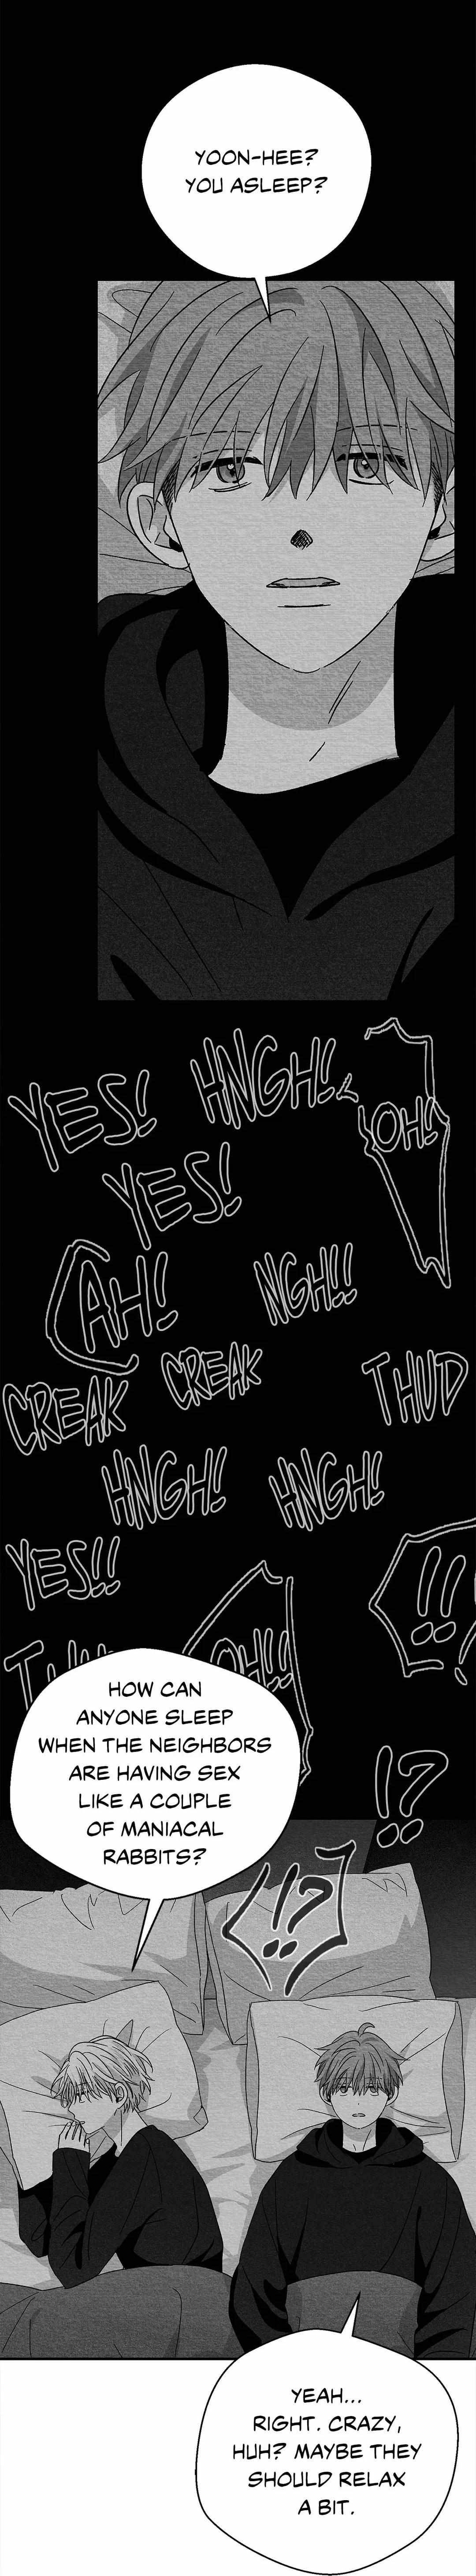 YOON-HEE?
YOU ASLEEP?
YES!
HNGH!
OH!
YES!
AH!
NGH!!
CREAK
CREAK
THUD
HNGH!
HNGH!
YES!!
!!
OH!!
HOW CAN
ANYONE SLEEP
WHEN THE NEIGHBORS
ARE HAVING SEX
LIKE A COUPLE
OF MANIACAL
RABBITS?
!?
!?
YEAH...
RIGHT. CRAZY,
HUH? MAYBE THEY
SHOULD RELAX
A BIT.